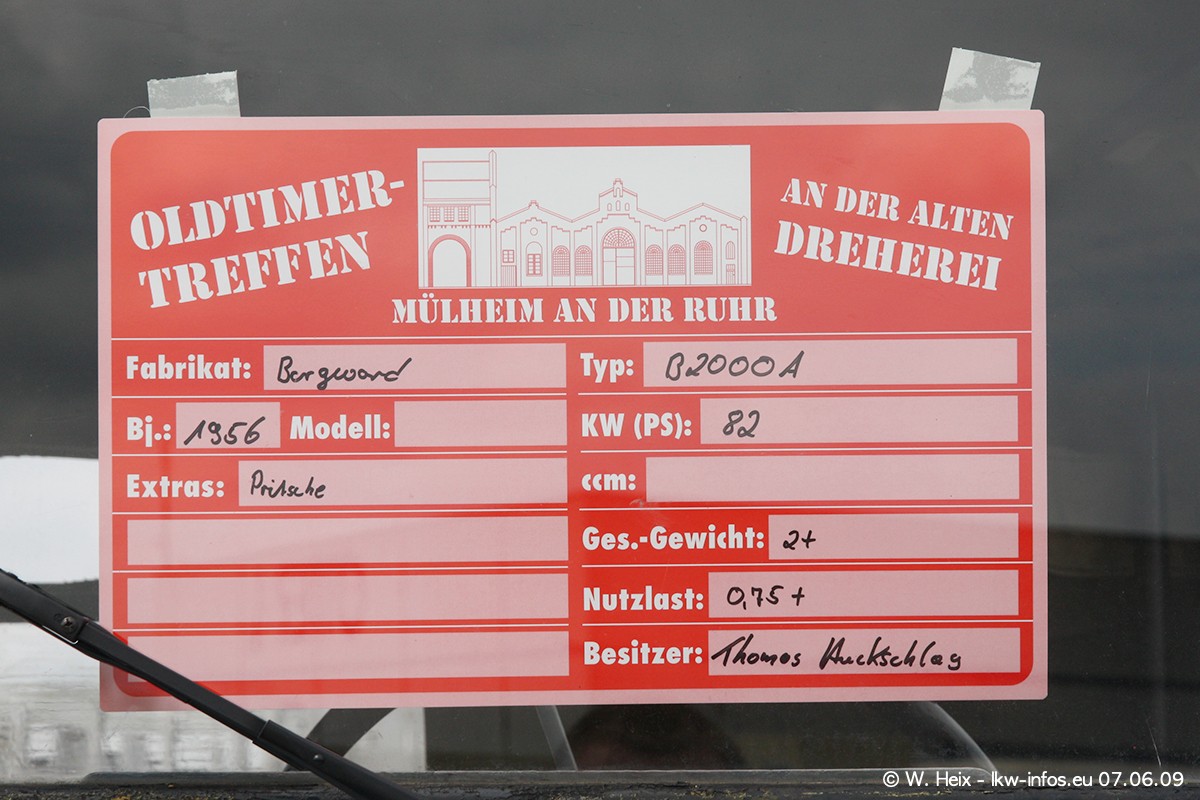 OLDTIMER-
TREFFEN
AN DER ALTEN
DREHEREI
MÜLHEIM AN DER RUHR
Fabrikat: Borgward
Typ: B2000A
Bj.: 1956 Modell:
KW (PS): 82
Extras: Pritsche
ccm:
Ges.-Gewicht: 2t
Nutzlast: 0,75t
Besitzer: Thomas Huckschlag
© W. Heix - lkw-infos.eu 07.06.09